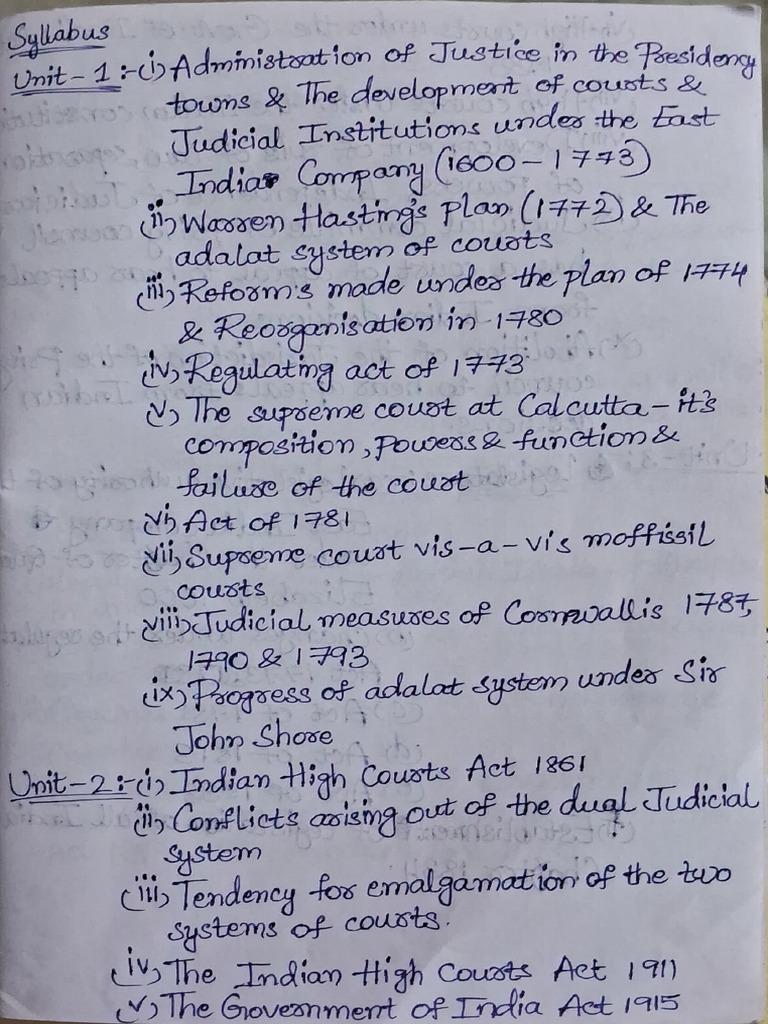 Syllabus
Unit-1:-(i) Administration of Justice in the Presidency
towns & The development of courts &
Judicial Institutions under the East
India Company (1600-1773)
(ii) Warren Hasting's plan (1772) & The
adalat system of courts
(iii) Reform's made under the plan of 1774
& Reorganisation in 1780
(iv) Regulating act of 1773
(v) The supreme court at Calcutta-it's
composition, Powers & function &
failure of the court
(vi) Act of 1781
(vii) Supreme court vis-a-vis moffissil
courts.
(viii) Judicial measures of Cornwallis 1787,
1790 & 1793
(ix) Progress of adalat system under Sir
John Shore
Unit-2:-(i) Indian High Courts Act 1861
(ii) Conflicts arising out of the dual Judicial
system
(iii) Tendency for emalgamation of the two
systems of courts.
(iv) The Indian High Courts Act 1911
(v) The Government of India Act 1915